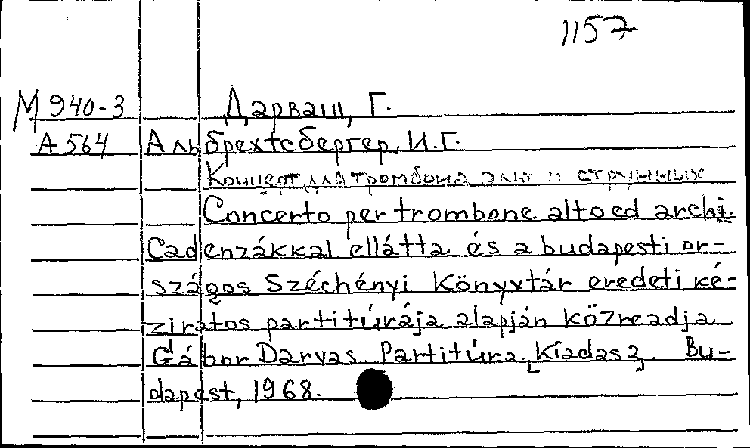 1157
М 940-3 Дарваш, Г.
А 564 Альбрехтсбергер, И.Г.
Концерт для тромбона альт и струнных
Concerto per trombone alto ed archi.
Cadenzákkal ellátta és a budapesti or-
szágos Széchényi Könyvtár eredeti ké-
ziratos partitúrája alapján közreadja
Gábor Darvas. Partitúra [Kiadas 2]. Bu-
dapest, 1968.